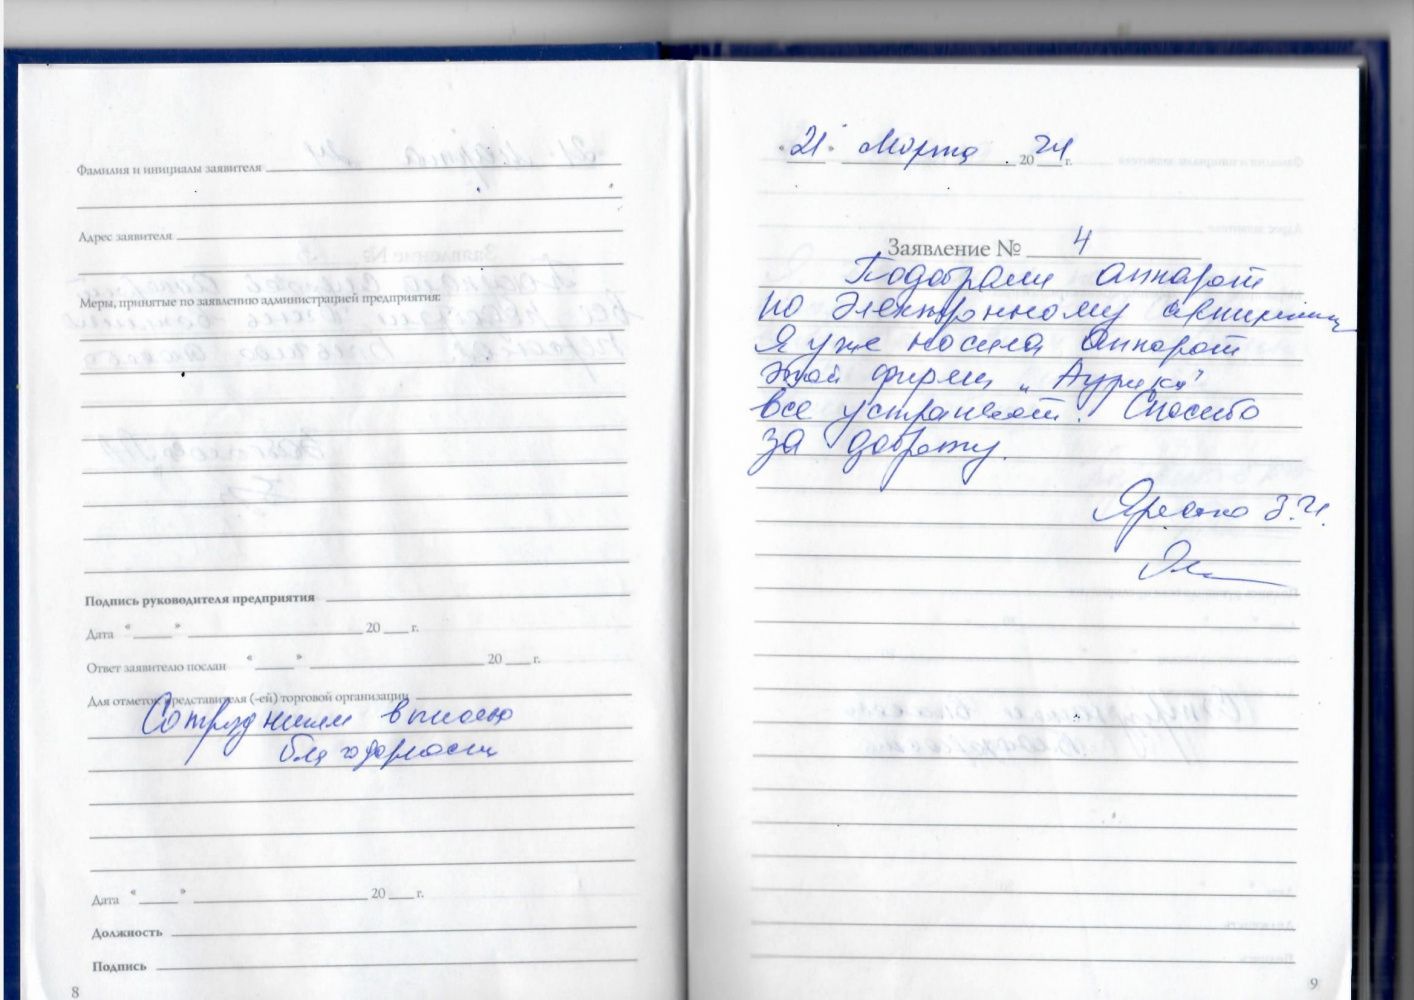 Фамилия и инициалы заявителя
Адрес заявителя
Меры, принятые по заявлению администрацией предприятия:
Подпись руководителя предприятия
Дата " " 20 г.
Ответ заявителю послан " " 20 г.
Для отметок представителя (-ей) торговой организации
Сотрудникам вынесли
благодарности
Дата " " 20 г.
Должность
Подпись
8
"21" Марта 2024 г.
Заявление № 4
Подобрали аппарат
по электронному
Я уже носила аппарат
этой фирмы „Аурика"
все устраивает. Спасибо
за доброту.
З.И.
9